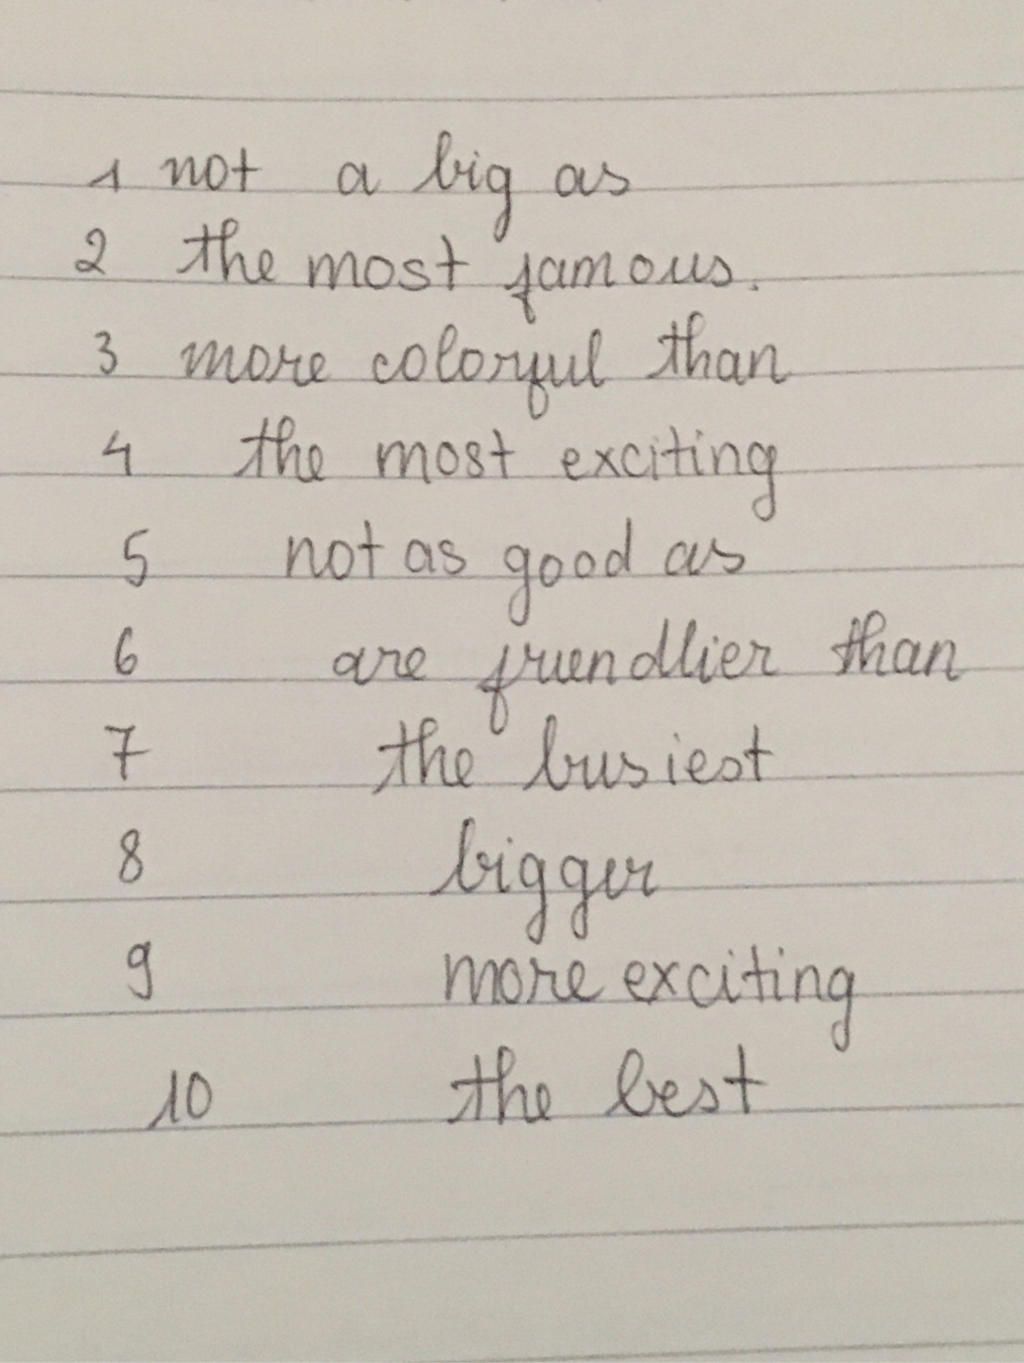 1 not a big as
2 the most famous.
3 more colorful than
4 the most exciting
5 not as good as
6 are friendlier than
7 the busiest
8 bigger
9 more exciting
10 the best